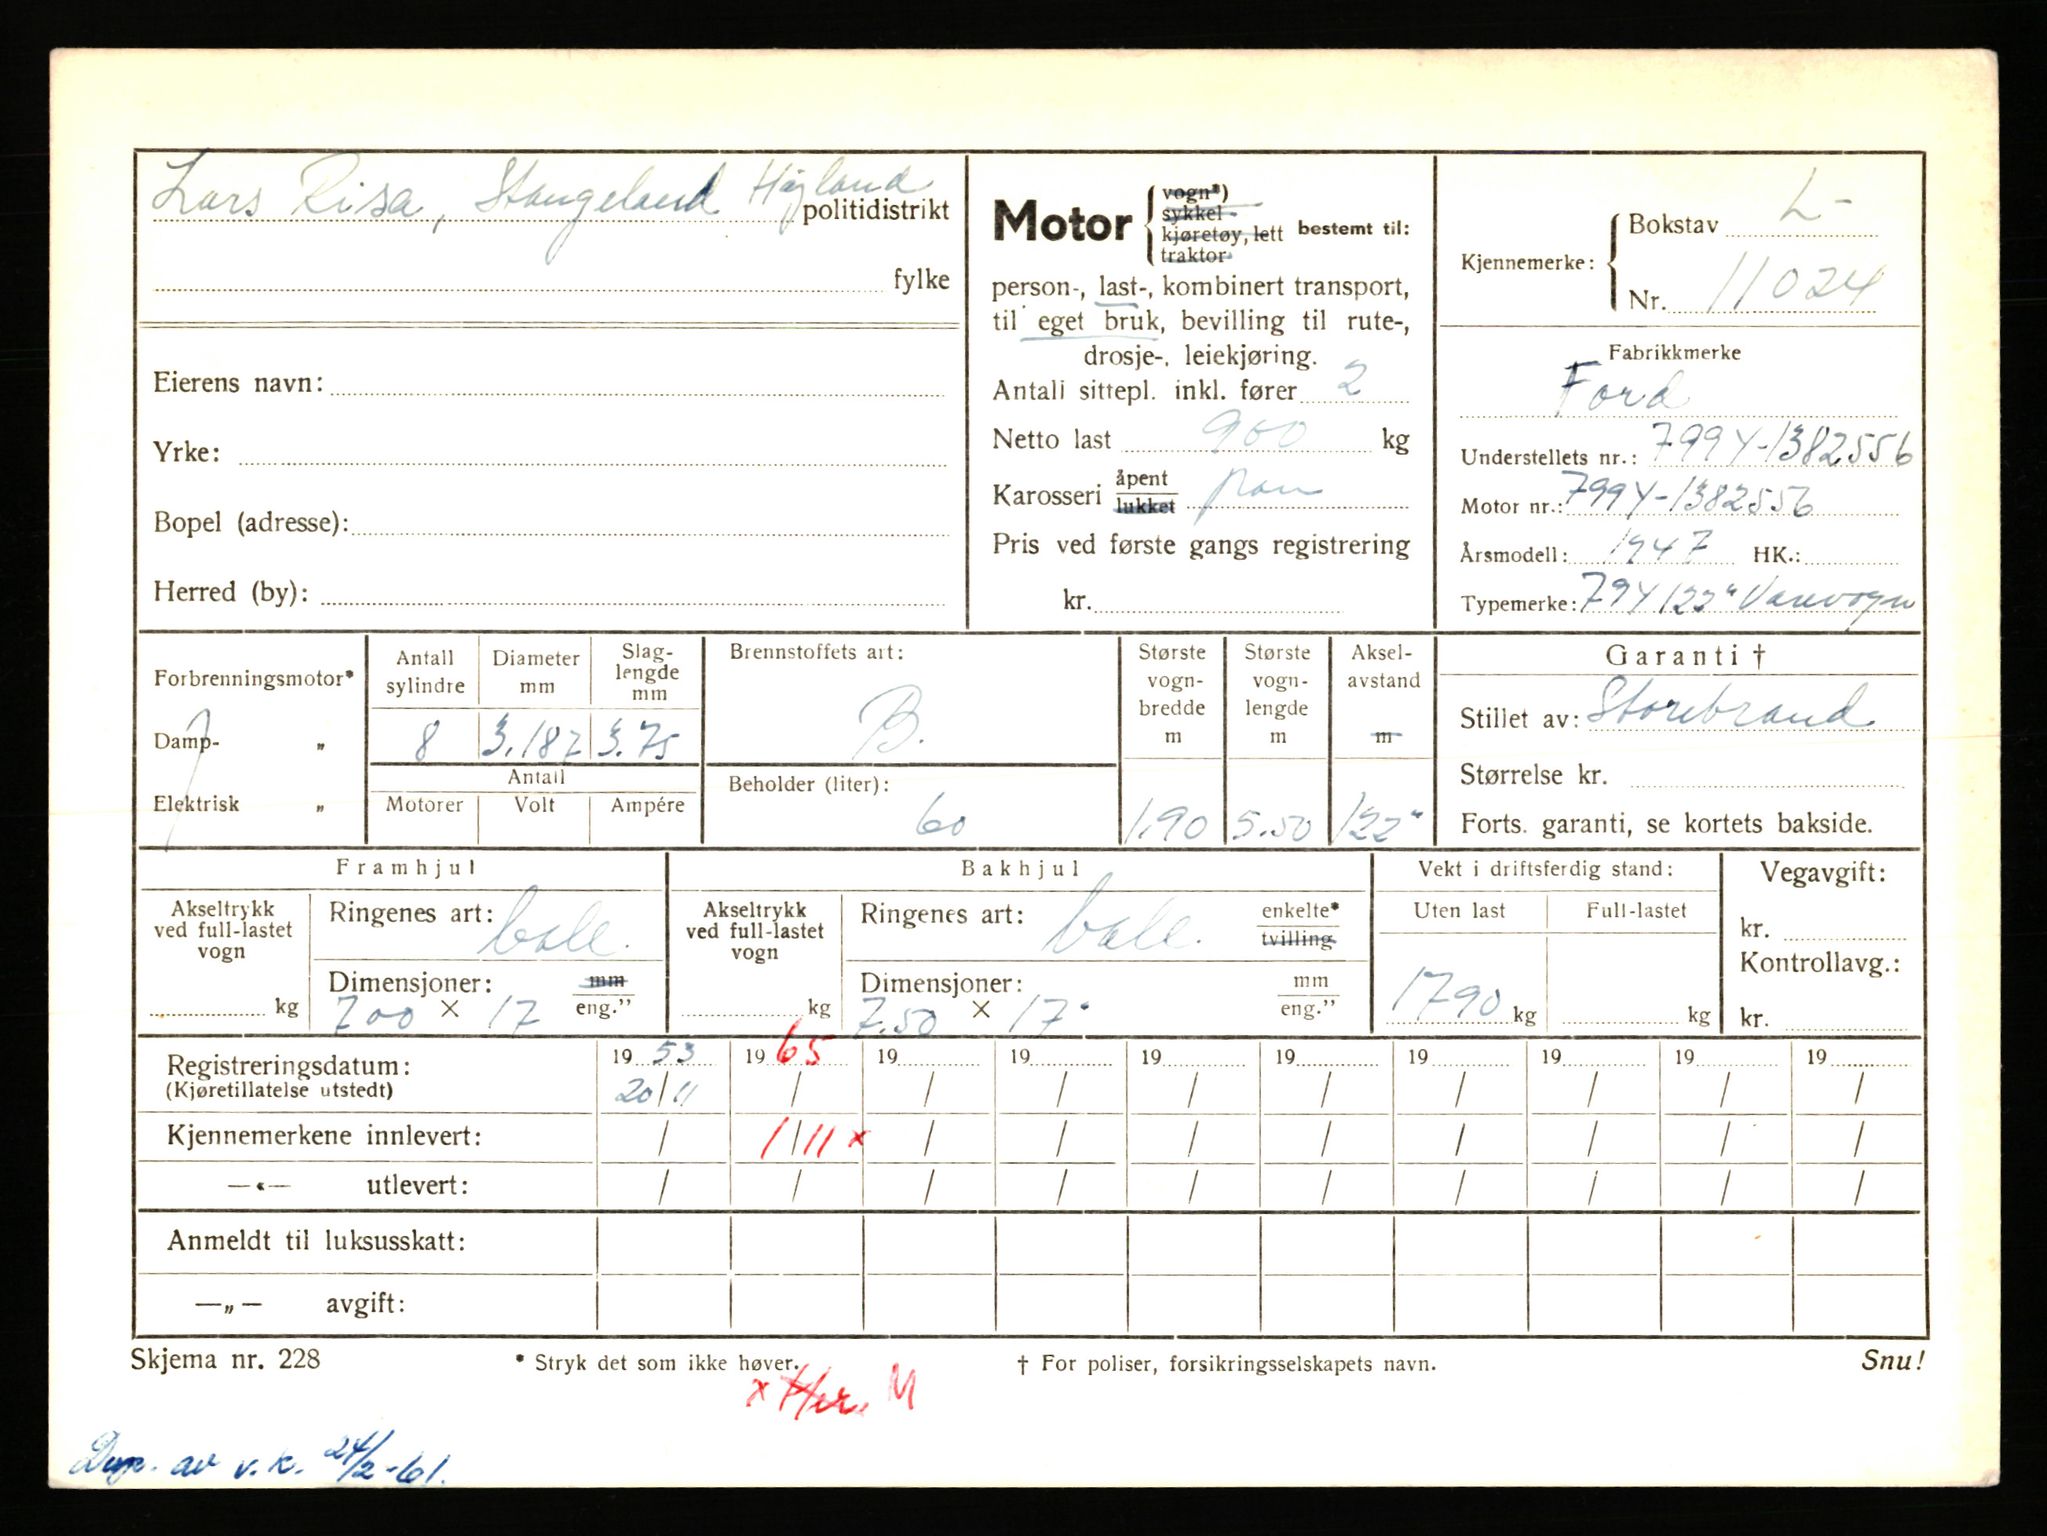 Lars Risa, Stangeland Håland
politidistrikt
fylke
Eierens navn:
Yrke:
Bopel (adresse):
Herred (by):
Motor vogn*) sykkel kjøretøy, lett traktor bestemt til:
person-, last-, kombinert transport,
til eget bruk, bevilling til rute-,
drosje-, leiekjøring.
Antall sittepl. inkl. fører 2
Netto last 900 kg
Karosseri åpent lukket
Pris ved første gangs registrering
kr.
Kjennemerke: Bokstav L-
Nr. 11024
Fabrikkmerke
Ford
Understellets nr.: 799Y-1382556
Motor nr.: 799Y-1382556
Årsmodell: 1947 HK.:
Typemerke: 79Y 122" Varevogn
Forbrenningsmotor*
Damp- „
Elektrisk „
Antall sylindre
8
Diameter mm
3.187
Slaglengde mm
3.75
Antall
Motorer Volt Ampére
Brennstoffets art:
B.
Beholder (liter):
60
Største vogn-bredde m
1.90
Største vogn-lengde m
5.50
Aksel-avstand m
122"
Garanti †
Stillet av: Storebrand
Størrelse kr.
Forts. garanti, se kortets bakside.
Framhjul
Akseltrykk ved full-lastet vogn
kg
Ringenes art:
Dimensjoner: mm eng."
700 × 17
Bakhjul
Akseltrykk ved full-lastet vogn
kg
Ringenes art: enkelte* tvilling
Dimensjoner: mm eng."
7.50 × 17"
Vekt i driftsferdig stand:
Uten last Full-lastet
1790 kg kg
Vegavgift:
kr.
Kontrollavg.:
kr.
Registreringsdatum: 19 53 19 65 19 19 19 19 19 19 19 19
(Kjøretillatelse utstedt) 20/11 / / / / / / / / /
Kjennemerkene innlevert: / 1/11 x / / / / / / / /
—«— utlevert: / / / / / / / / / /
Anmeldt til luksusskatt:
—„— avgift:
Skjema nr. 228 * Stryk det som ikke høver. † For poliser, forsikringsselskapets navn. Snu!
x Her. M
Dup. av v.k. 24/2-61.